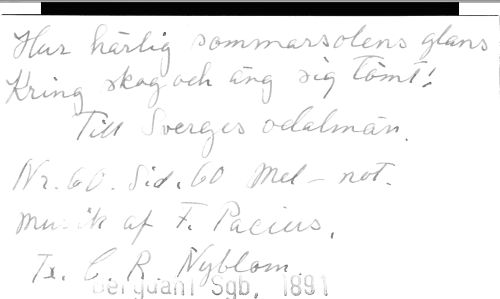 Hur härlig sommarsolens glans
Kring skog och äng sig tömt!
Till Sverges odalmän.
Nr. 60. Sid. 60 Mel-not.
Musik af F. Pacius.
Tx. C. R. Nyblom.
Bergdahl Sgb, 1891